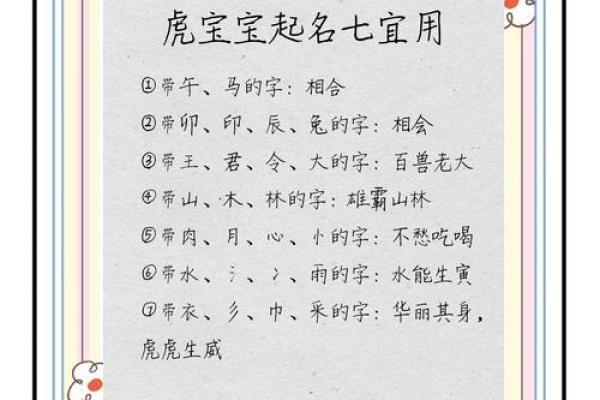 虎宝宝起名七宜用
①带午、马的字：相合
②带卯、印、辰、兔的字：相会
③带王、君、令、大的字：百兽老大
④带山、木、林的字：雄霸山林
⑤带肉、月、心、忄的字：不愁吃喝
⑥带水、氵、冫、雨的字：水能生寅
⑦带衣、彡、巾、采的字：华丽其身，
虎虎生威